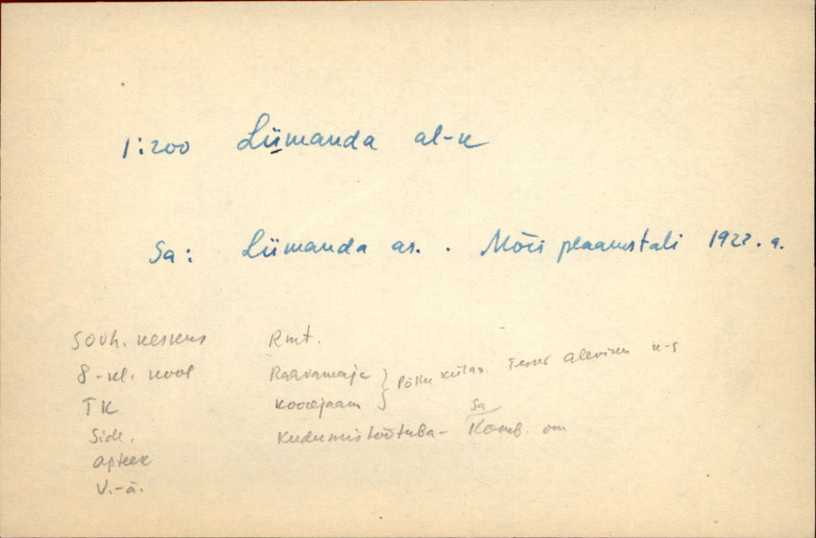 1:200 Lümanda al-k
Sa: Lümanda as. . Mõis plaanistati 1922. a.
Sovh. keskus Rmt.
8-kl. kool Rahvamaja } Põllu külas. Teine alevikus k-s
TK koorejaam
Side. Kudumistöötuba- Sa Komb. om
Apteek
V.-ä.